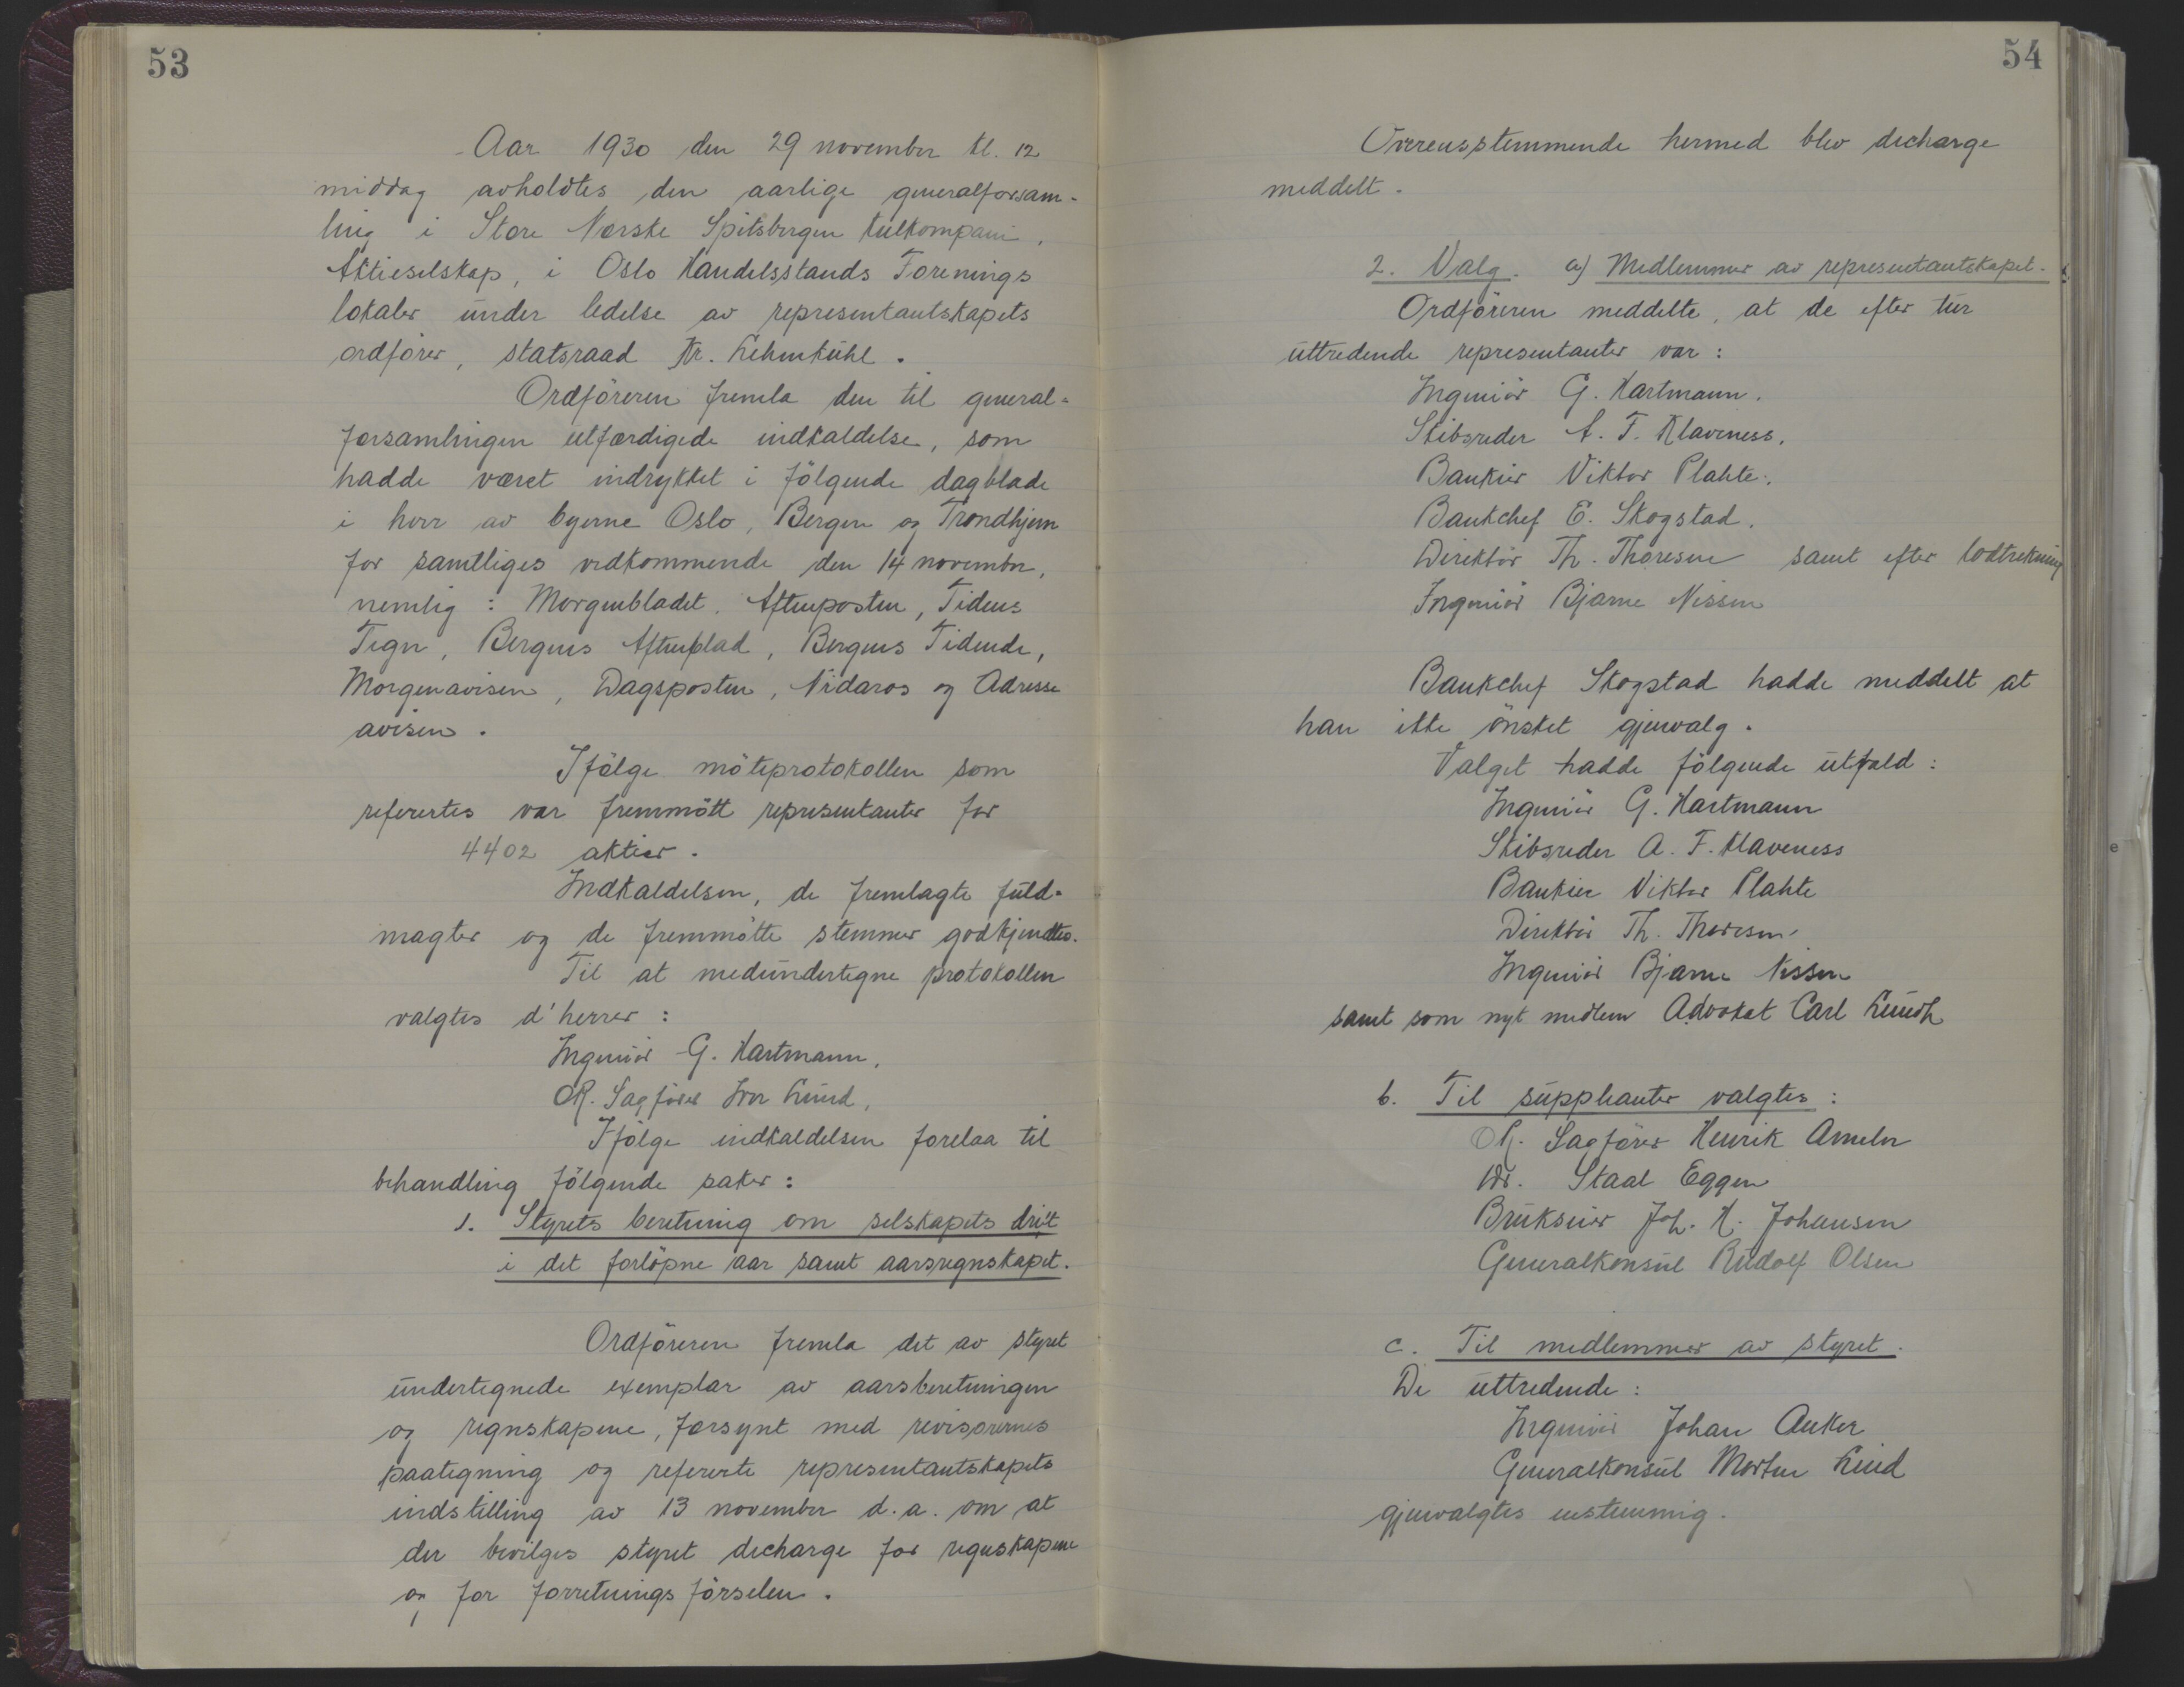 53
Aar 1930 den 29 november kl. 12
middag avholdtes den aarlige generalforsam-
ling i Store Norske Spitsbergen Kulkompani,
Aktieselskap, i Oslo Handelsstands Forenings
lokaler under ledelse av representantskapets
ordfører, statsraad Kr. Lehmkuhl.
Ordföreren fremla den til general-
forsamlingen utfærdigede indkaldelse, som
hadde været indrykket i fölgende dagblade
i hver av byerne Oslo, Bergen og Trondhjem
for samtliges vedkommende den 14 november,
nemlig: Morgenbladet, Aftenposten, Tidens
Tegn, Bergens Aftenblad, Bergens Tidende,
Morgenavisen, Dagsposten, Nidaros og Adresse
avisen.
Ifölge möteprotokollen som
refereres var fremmött representanter for
4402 aktier.
Indkaldelsen, de fremlagte fuld-
magter og de fremmötte stemmer godkjendtes.
Til at medundertegne protokollen
valgtes d'herrer:
Ingeniör G. Hartmann,
O.R. Sagförer Iver Lund,
Ifölge indkaldelsen forelaa til
behandling fölgende saker:
1. Styrets beretning om selskapets drift
i det forlöpne aar samt aarsregnskapet.
Ordföreren fremla det av styret
undertegnede exemplar av aarsberetningen
og regnskapene, forsynt med revisorernes
paategning og refererte representantskapets
indstilling av 13 november d.a. om at
der bevilges styret decharge for regnskapene
og for forretningsförselen.
54
Overensstemmende hermed blev decharge
meddelt.
2. Valg. a) Medlemmer av representantskapet.
Ordföreren meddelte, at de efter tur
uttredende representanter var:
Ingeniör G. Hartmann.
Skibsreder A. F. Klaveness.
Bankier Viktor Plahte.
Bankchef E. Skogstad.
Direktör Th. Thoresen samt efter lodtrekning
Ingeniör Bjarne Nissen
Bankchef Skogstad hadde meddelt at
han ikke önsket gjenvalg.
Valget hadde fölgende utfald:
Ingeniör G. Hartmann
Skibsreder A. F. Klaveness
Bankier Viktor Plahte
Direktör Th. Thoresen.
Ingeniör Bjarne Nissen
samt som nyt medlem Advokat Carl Lundh
b. Til supplianter valgtes:
O.R. Sagförer Henrik Ameln
Dr. Staal Eggen
Brukseier Joh. H. Johansen
Generalkonsul Rudolf Olsen
c. Til medlemmer av styret.
De uttredende:
Ingeniör Johan Anker
Generalkonsul Morten Lind
gjenvalgtes enstemmig.